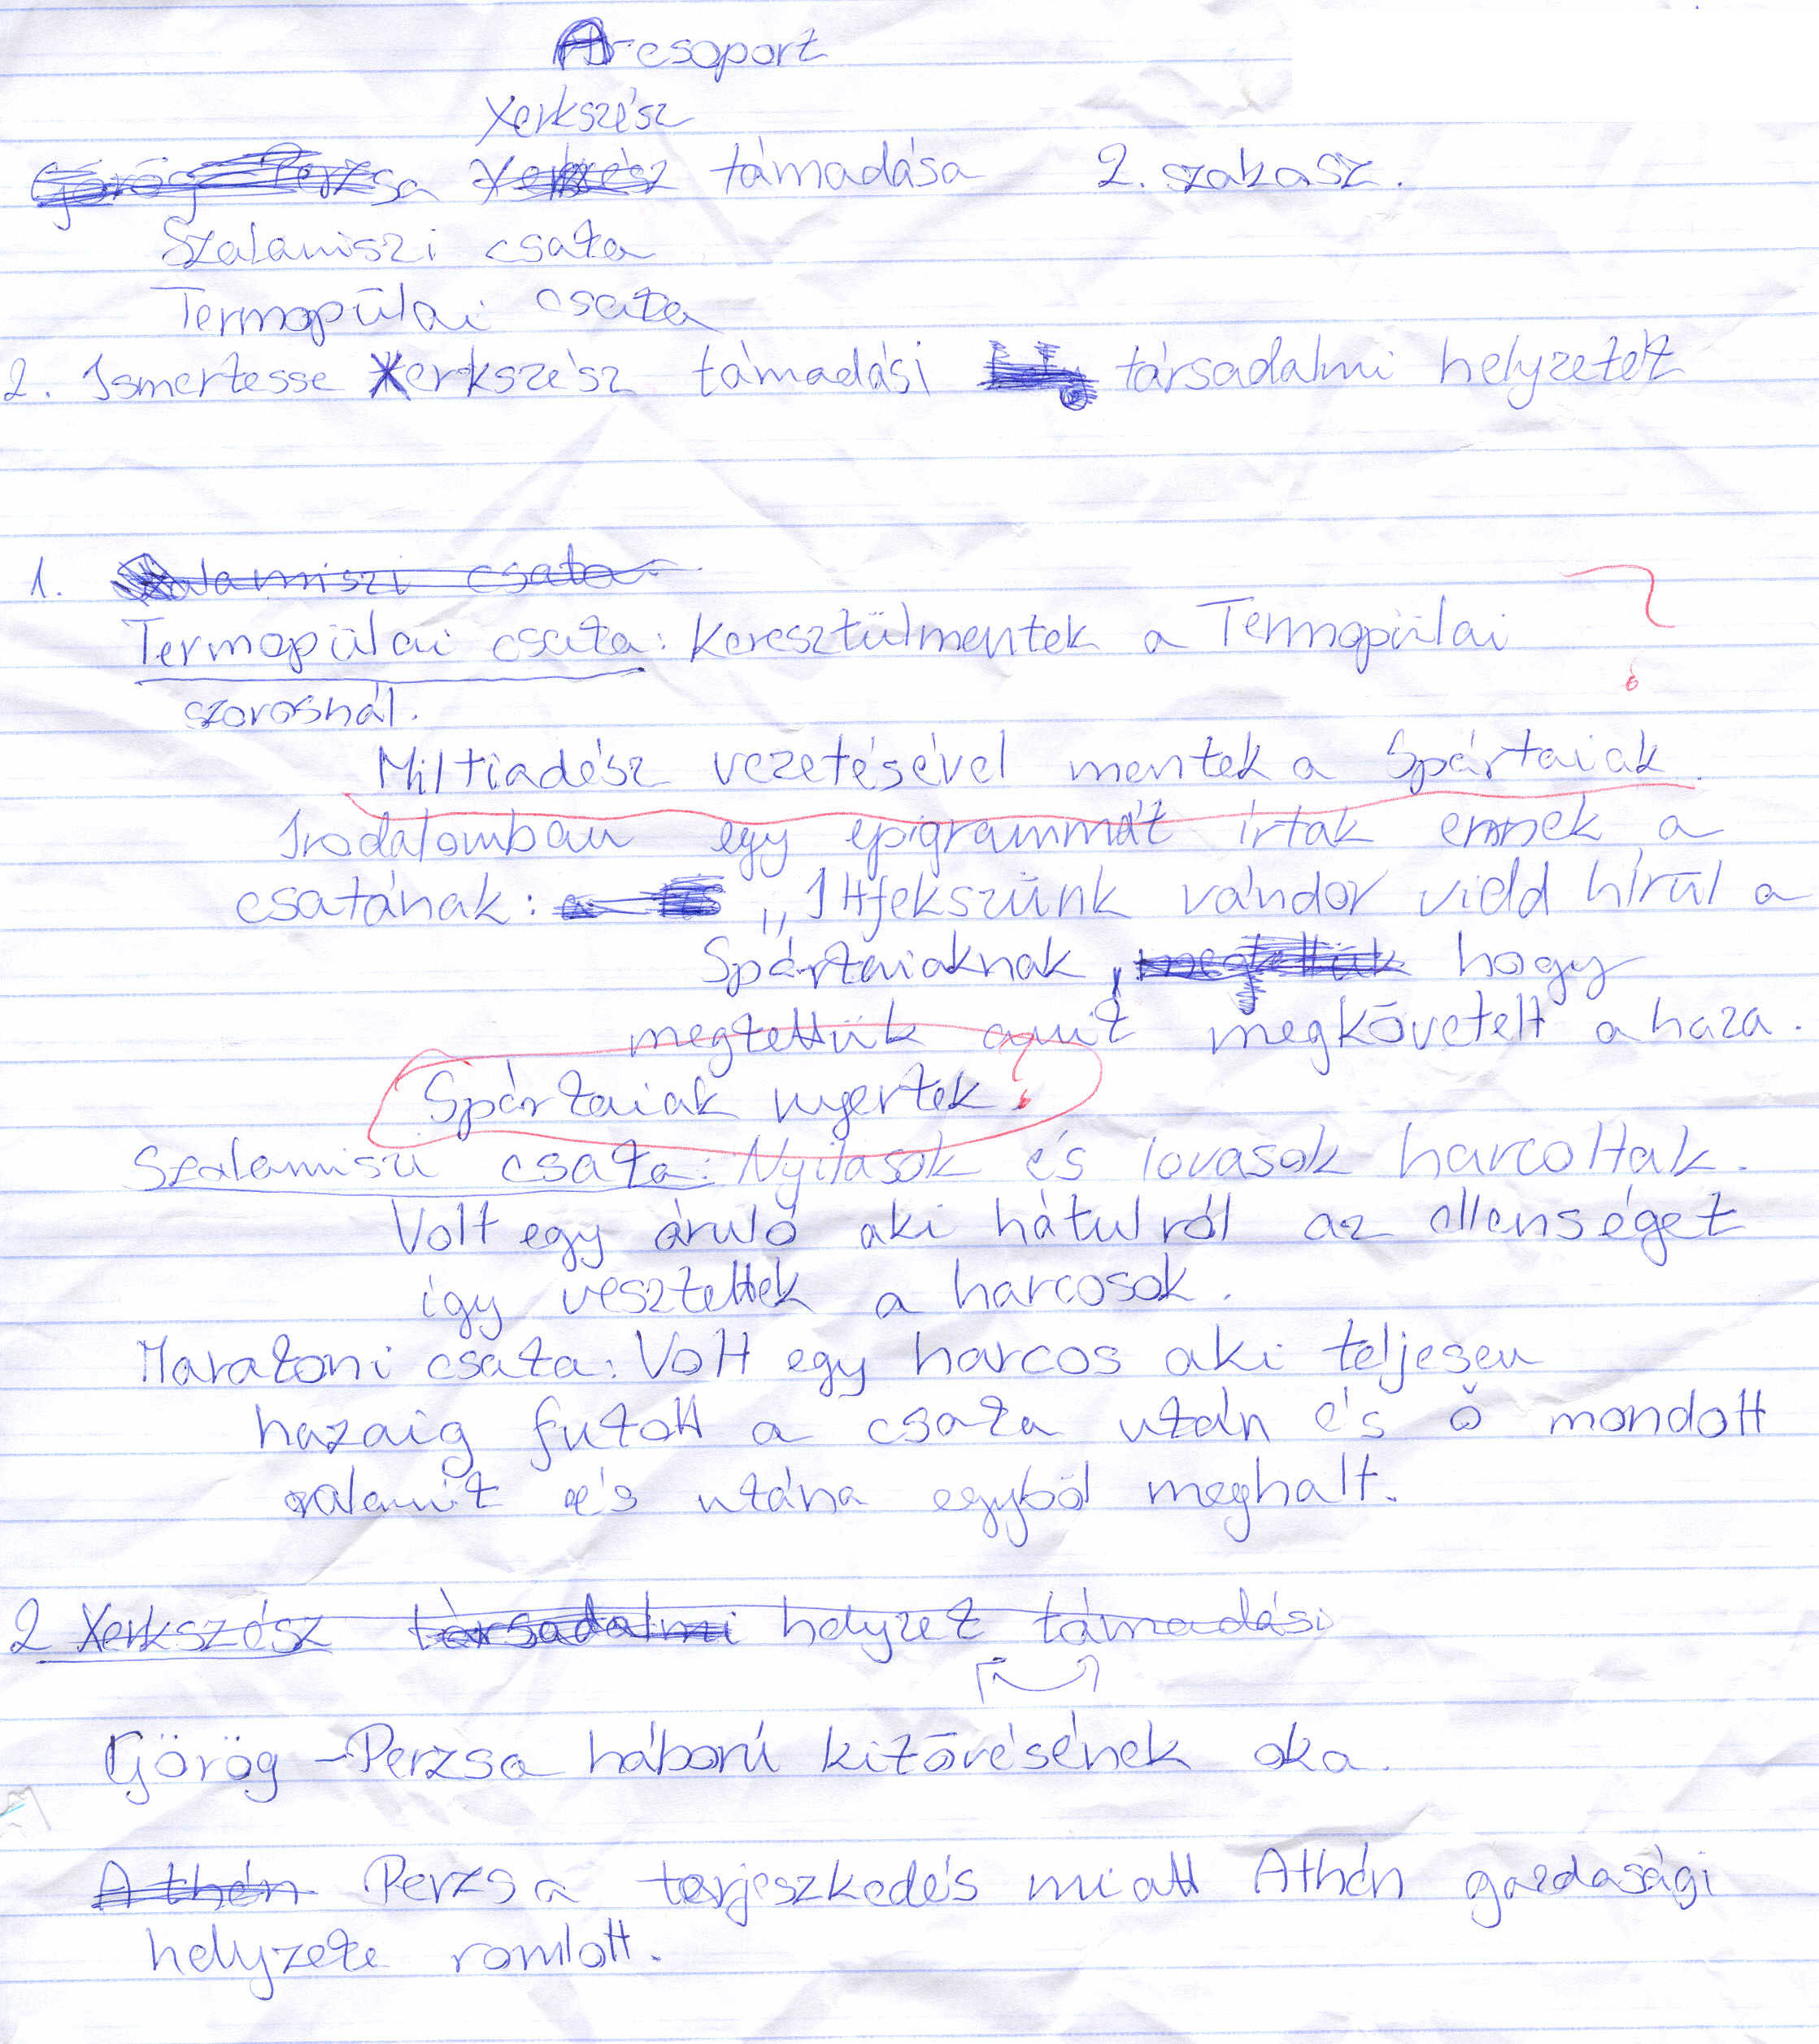 A csoport
Xerkszész
Görög Perzsa Xerxész támadása 2. szakasz.
Szalamiszi csata
Termopülai csata
2. Ismertesse Xerkszész támadási társadalmi helyzetét
1. Szalamiszi csata
Termopülai csata: Keresztülmentek a Termopülai
szorosnál.
Miltiadész vezetésével mentek a Spártaiak.
Irodalomban egy epigrammát írtak ennek a
csatának: „Ittfekszünk vándor vidd hírül a
Spártaiaknak, megtettük hogy
megtettük amit megkövetelt a haza.
Spártaiak nyertek.
Szalamiszi csata: Nyilasok és lovasok harcoltak.
Volt egy áruló aki hátulról az ellenséget
így vesztettek a harcosok.
Maratoni csata: Volt egy harcos aki teljesen
hazaig futott a csata után és ő mondott
valamit és utána egyből meghalt.
2 Xerkszész társadalmi helyzet támadási
Görög-Perzsa háború kitörésének oka.
Athén Perzsa terjeszkedés miatt Athén gazdasági
helyzete romlott.